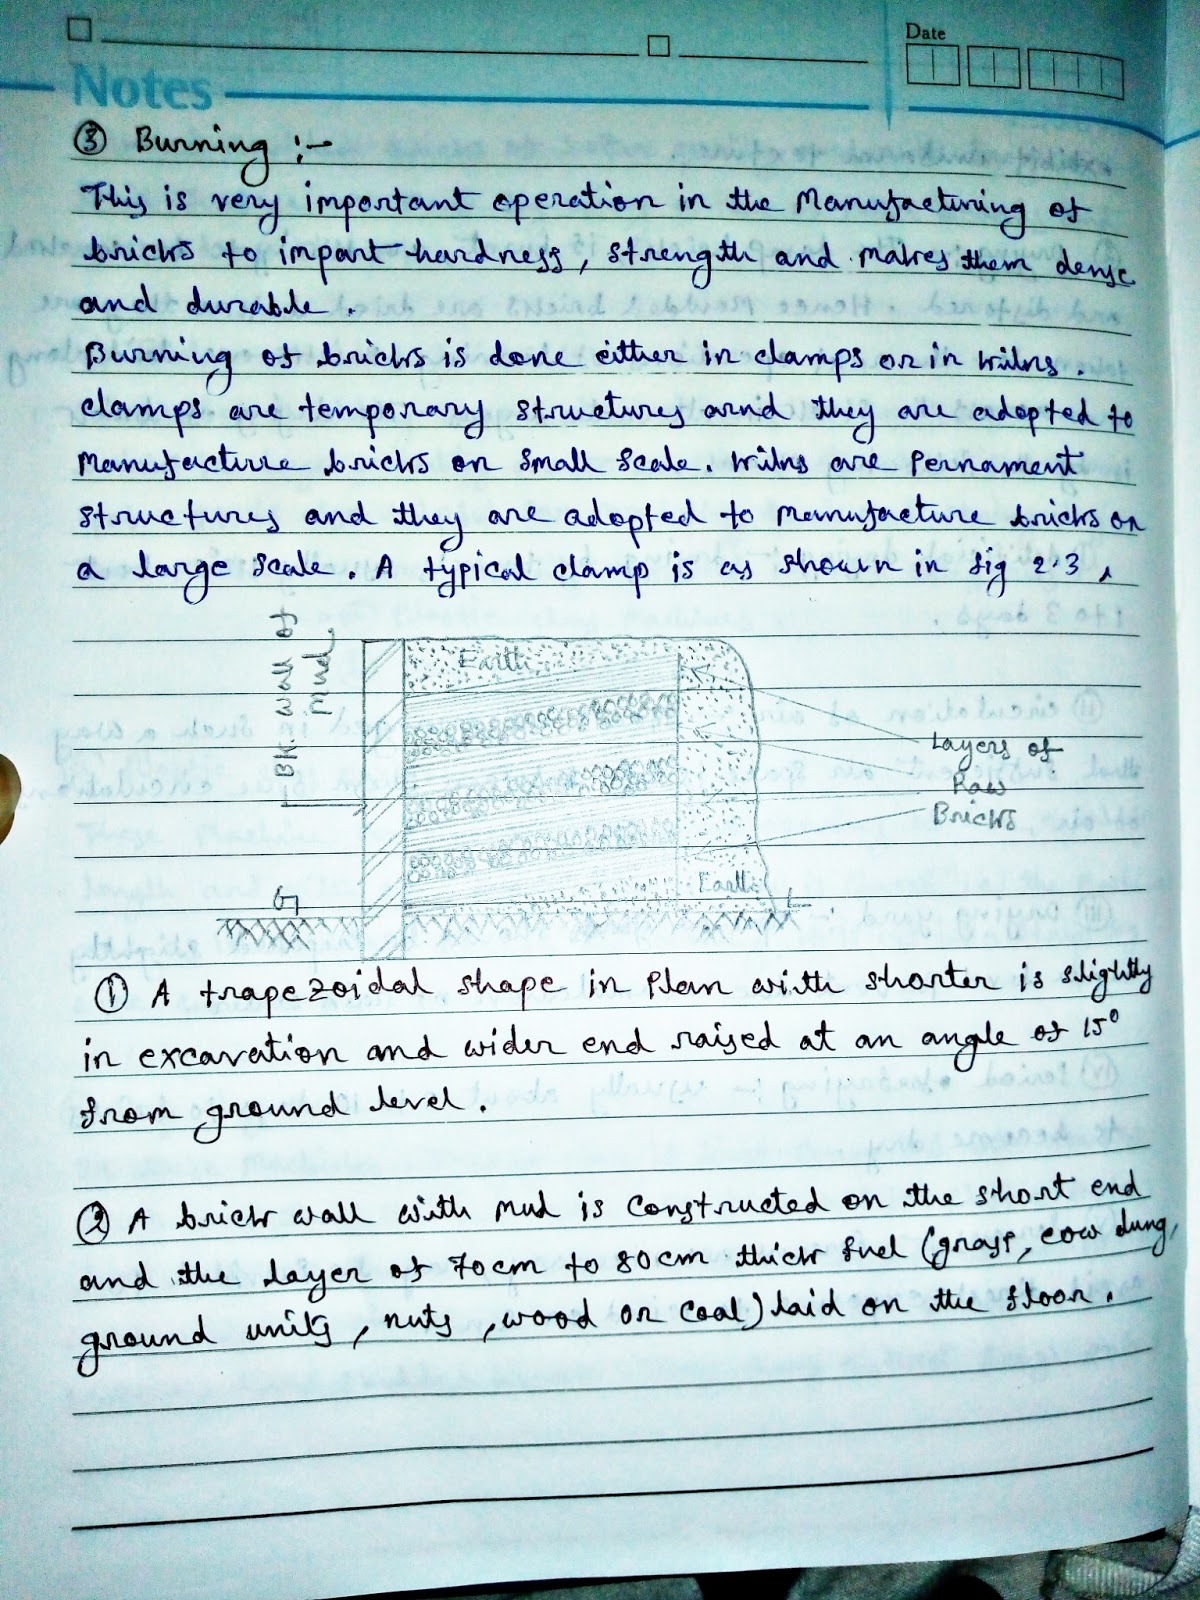 Date
Notes
③ Burning :-
This is very important operation in the Manufacturing of
bricks to impart hardness, strength and makes them dense
and durable.
Burning of bricks is done either in clamps or in kilns.
clamps are temporary structures arnd they are adopted to
manufacture bricks on small scale. kilns are Pernament
structures and they are adopted to manufacture bricks on
a large scale. A typical clamp is as shown in fig 2.3,
BK. wall of
mud
Earth
Layers of
Raw
Bricks
Earth
G
L
① A trapezoidal shape in Plan with shorter is slightly
in excavation and wider end raised at an angle of 15°
from ground level.
② A brick wall with mud is constructed on the short end
and the layer of 70cm to 80cm thick fuel (grass, cow dung,
ground units, nuts, wood or coal) laid on the floor.